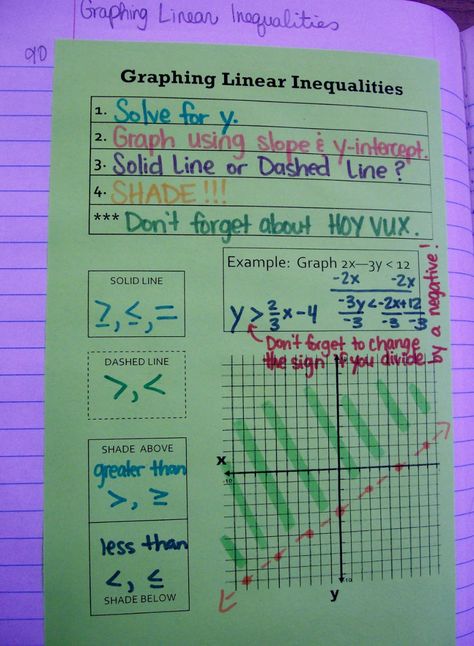 Graphing Linear Inequalities
90
Graphing Linear Inequalities
1. Solve for y.
2. Graph using slope & y-intercept.
3. Solid Line or Dashed Line?
4. SHADE!!!
*** Don't forget about HOY VUX.
Example: Graph 2x—3y < 12
-2x -2x
-3y < -2x+12
-3 -3 -3
y > 2/3 x - 4
Don't forget to change
the sign if you divide
by a negative!
SOLID LINE
≥, ≤, =
DASHED LINE
>, <
SHADE ABOVE
greater than
>, ≥
less than
<, ≤
SHADE BELOW
x
-10
-10
y